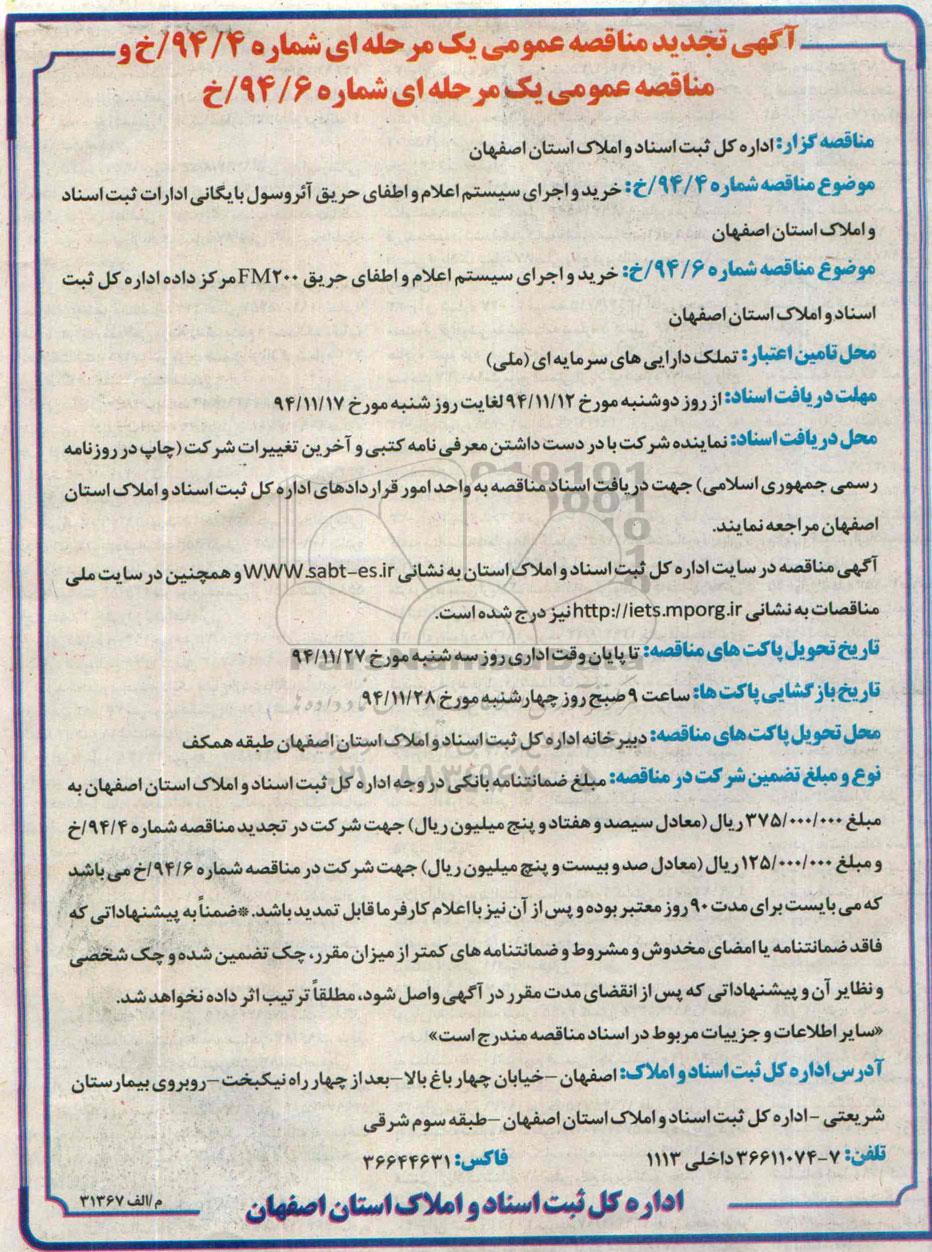 آگهی تجدید مناقصه عمومی یک مرحله ای شماره ۹۴/۴/خ و
مناقصه عمومی یک مرحله ای شماره ۹۴/۶/خ
مناقصه گزار: اداره کل ثبت اسناد و املاک استان اصفهان
موضوع مناقصه شماره ۹۴/۴/خ: خرید و اجرای سیستم اعلام و اطفای حریق آئروسول بایگانی ادارات ثبت اسناد
و املاک استان اصفهان
موضوع مناقصه شماره ۹۴/۶/خ: خرید و اجرای سیستم اعلام و اطفای حریق FM۲۰۰ مرکز داده اداره کل ثبت
اسناد و املاک استان اصفهان
محل تامین اعتبار: تملک دارایی های سرمایه ای (ملی)
مهلت دریافت اسناد: از روز دوشنبه مورخ ۹۴/۱۱/۱۲ لغایت روز شنبه مورخ ۹۴/۱۱/۱۷
محل دریافت اسناد: نماینده شرکت با در دست داشتن معرفی نامه کتبی و آخرین تغییرات شرکت (چاپ در روزنامه
رسمی جمهوری اسلامی) جهت دریافت اسناد مناقصه به واحد امور قراردادهای اداره کل ثبت اسناد و املاک استان
اصفهان مراجعه نمایند.
آگهی مناقصه در سایت اداره کل ثبت اسناد و املاک استان به نشانی WWW.sabt-es.ir و همچنین در سایت ملی
مناقصات به نشانی http://iets.mporg.ir نیز درج شده است.
تاریخ تحویل پاکت های مناقصه: تا پایان وقت اداری روز سه شنبه مورخ ۹۴/۱۱/۲۷
تاریخ بازگشایی پاکت ها: ساعت ۹ صبح روز چهارشنبه مورخ ۹۴/۱۱/۲۸
محل تحویل پاکت های مناقصه: دبیرخانه اداره کل ثبت اسناد و املاک استان اصفهان طبقه همکف
نوع و مبلغ تضمین شرکت در مناقصه: مبلغ ضمانتنامه بانکی در وجه اداره کل ثبت اسناد و املاک استان اصفهان به
مبلغ ۳۷۵/۰۰۰/۰۰۰ ریال (معادل سیصد و هفتاد و پنج میلیون ریال) جهت شرکت در تجدید مناقصه شماره ۹۴/۴/خ
و مبلغ ۱۲۵/۰۰۰/۰۰۰ ریال (معادل صد و بیست و پنج میلیون ریال) جهت شرکت در مناقصه شماره ۹۴/۶/خ می باشد
که می بایست برای مدت ۹۰ روز معتبر بوده و پس از آن نیز با اعلام کارفرما قابل تمدید باشد. *ضمناً به پیشنهاداتی که
فاقد ضمانتنامه یا امضای مخدوش و مشروط و ضمانتنامه های کمتر از میزان مقرر، چک تضمین شده و چک شخصی
و نظایر آن و پیشنهاداتی که پس از انقضای مدت مقرر در آگهی واصل شود، مطلقاً ترتیب اثر داده نخواهد شد.
«سایر اطلاعات و جزییات مربوط در اسناد مناقصه مندرج است»
آدرس اداره کل ثبت اسناد و املاک: اصفهان -خیابان چهارباغ بالا-بعد از چهار راه نیکبخت-روبروی بیمارستان
شریعتی -اداره کل ثبت اسناد و املاک استان اصفهان -طبقه سوم شرقی
تلفن: ۷-۳۶۶۱۱۰۷۴ داخلی ۱۱۱۳ فاکس: ۳۶۶۴۴۶۳۱
اداره کل ثبت اسناد و املاک استان اصفهان
م/الف ۳۱۳۶۷